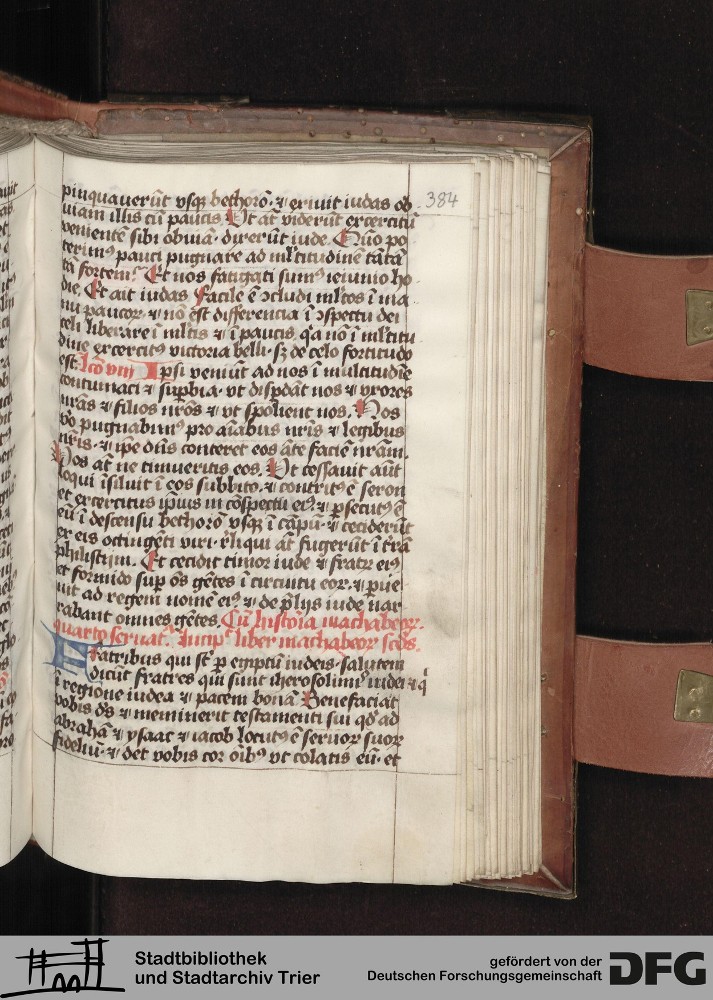 384
pinquaverūt vsqꝫ bethorō · ⁊ exivit iudas ob
viam illis cū paucis Ut āt viderūt exercitū
venientē sibi obviā · dixerūt iude · Quō po
terimꝰ pauci pugnare ad ml'titudinē tātā
tā fortem · Et nos fatigati sumꝰ ieiunio ho
die · Et ait iudas Facile ē ↄcludi ml'tos ī ma
nu paucoꝝ · ⁊ nō ēst differencia ī ↄspectu dei
celi liberare ī ml'tis ⁊ ī paucis · q̄a nō ī ml'titu
dine exercitꝰ victoria belli · sꝫ de celo fortitudo
est · lcō viij Ipsi veniūt ad nos ī multitudīe
contumaci ⁊ sup̄bia · vt disp̄dāt nos ⁊ vxores
nr̄as ⁊ filios nr̄os ⁊ vt spolient nos · Nos
v̄o pugnabimꝰ pro aīabus nr̄is ⁊ legibus
nr̄is · ⁊ ip̄e dn̄s conteret eos āte faciē nr̄am ·
Vos āt ne timueritis eos · Ut cessavit aūt
loqui īsiluit ī eos subbito · ⁊ contritꝰ ē seron
et exercitus ip̄ius in cōspectu eiꝰ · ⁊ p̄secutꝰ ē
eū ī descensu bethorō vsqꝫ ī cāpū · ⁊ ceciderūt
ex eis octingēti viri · r̄liqui āt fugerūt ī t̄rā
philistijm · Et cecidit timor iude ⁊ fratꝝ eiꝰ
et formido sup̄ oēs gētes ī circuitu eoꝝ · ⁊ p̄ue
nit ad regem nomē eiꝰ · ⁊ de p̄lijs iude nar
rabant omnes gētes · Cū hystoria machabeoꝝ ·
quarto seruat' · Incip' liber machabeoꝝ scd̄s ·
Fratribus qui st̄ p̄ egiptū iudeis · salutem
dicūt fratres qui sunt iherosolimꝰ iudei ⁊ q̄
ī regione iudea ⁊ pacem bonā Benefaciat
vobis dꝰs ⁊ meminerit testamenti sui qd̄ ad
abrahā ⁊ ysaac ⁊ iacob locutꝰ ē seruoꝝ suoꝝ
fideliū · ⁊ det vobis cor oībꝰ vt colatis eū · et
Stadtbibliothek
und Stadtarchiv Trier
gefördert von der
Deutschen Forschungsgemeinschaft
DFG